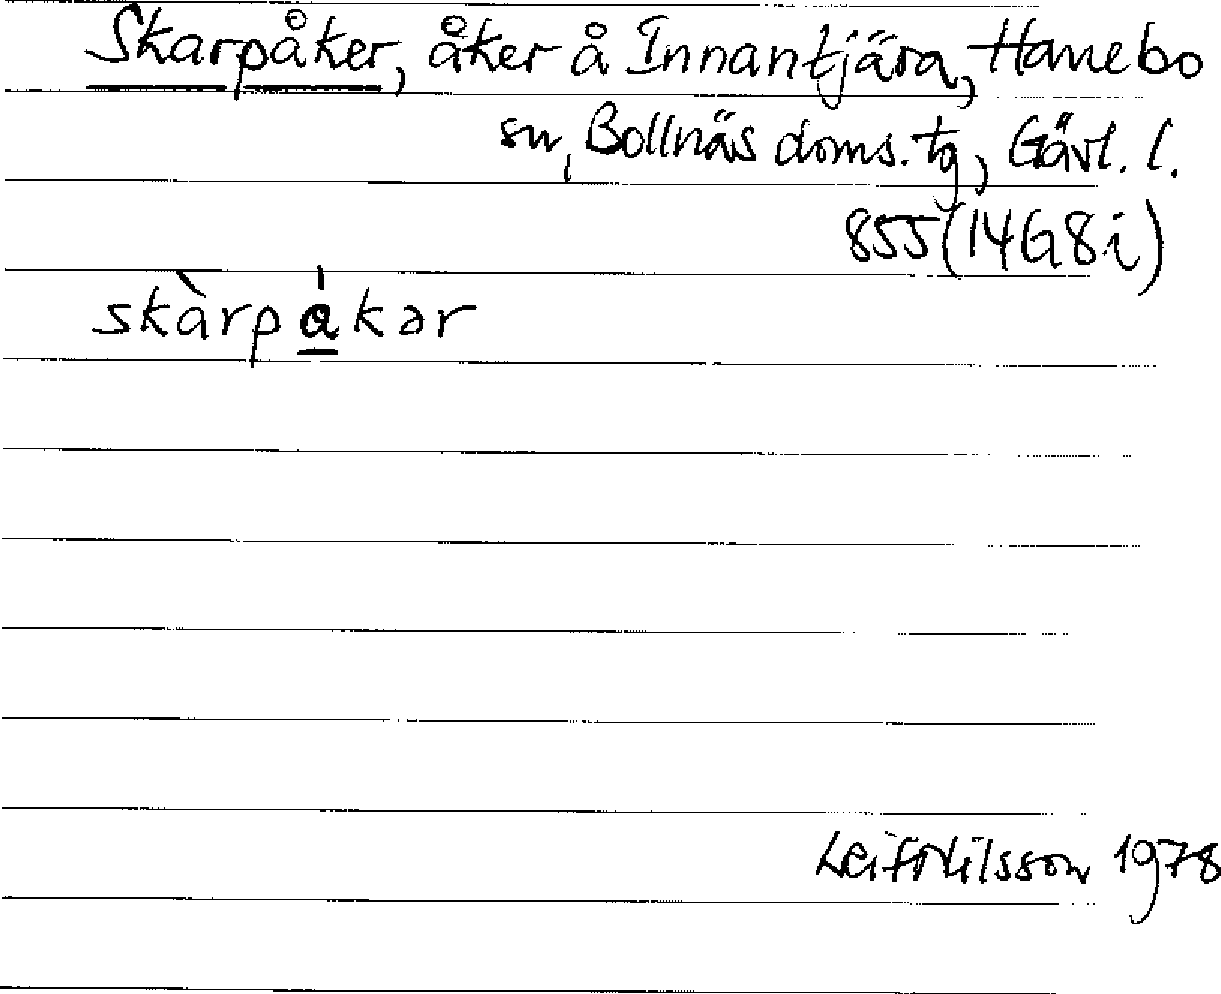 Skarpåker, åker å Innantjära, Hanebo
sn, Bollnäs doms. tg, Gävl. l.
855 (14G8i)
skàrpa̱̍kər
Leif Nilsson 1978